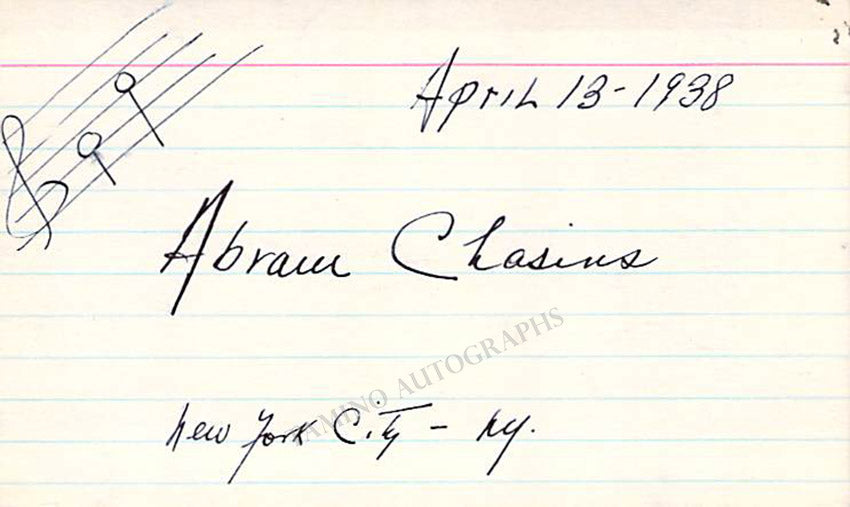 April 13-1938
Abram Chasins
TAMINO AUTOGRAPHS
New York City - NY.